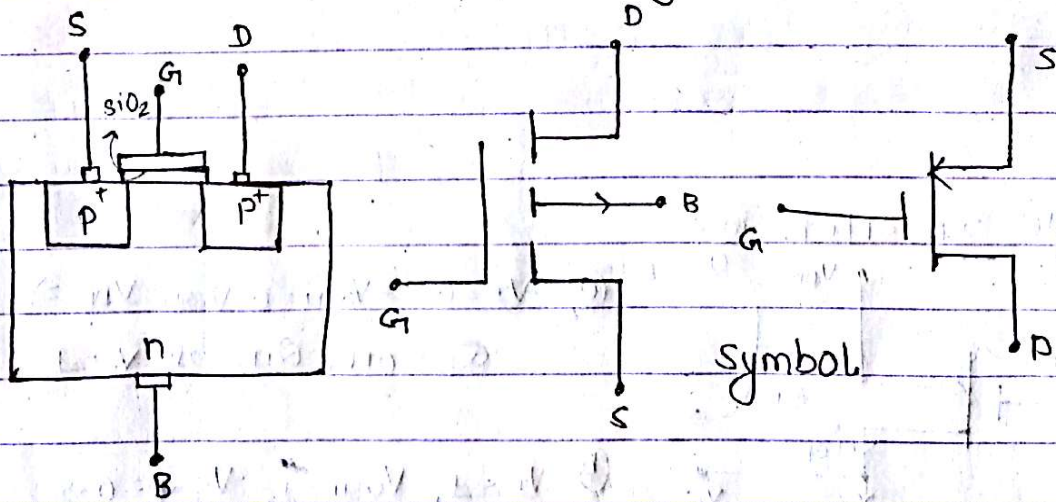 S D G SiO2
P+ P+
n
B
D
B
G
S
S
G
D
Symbol